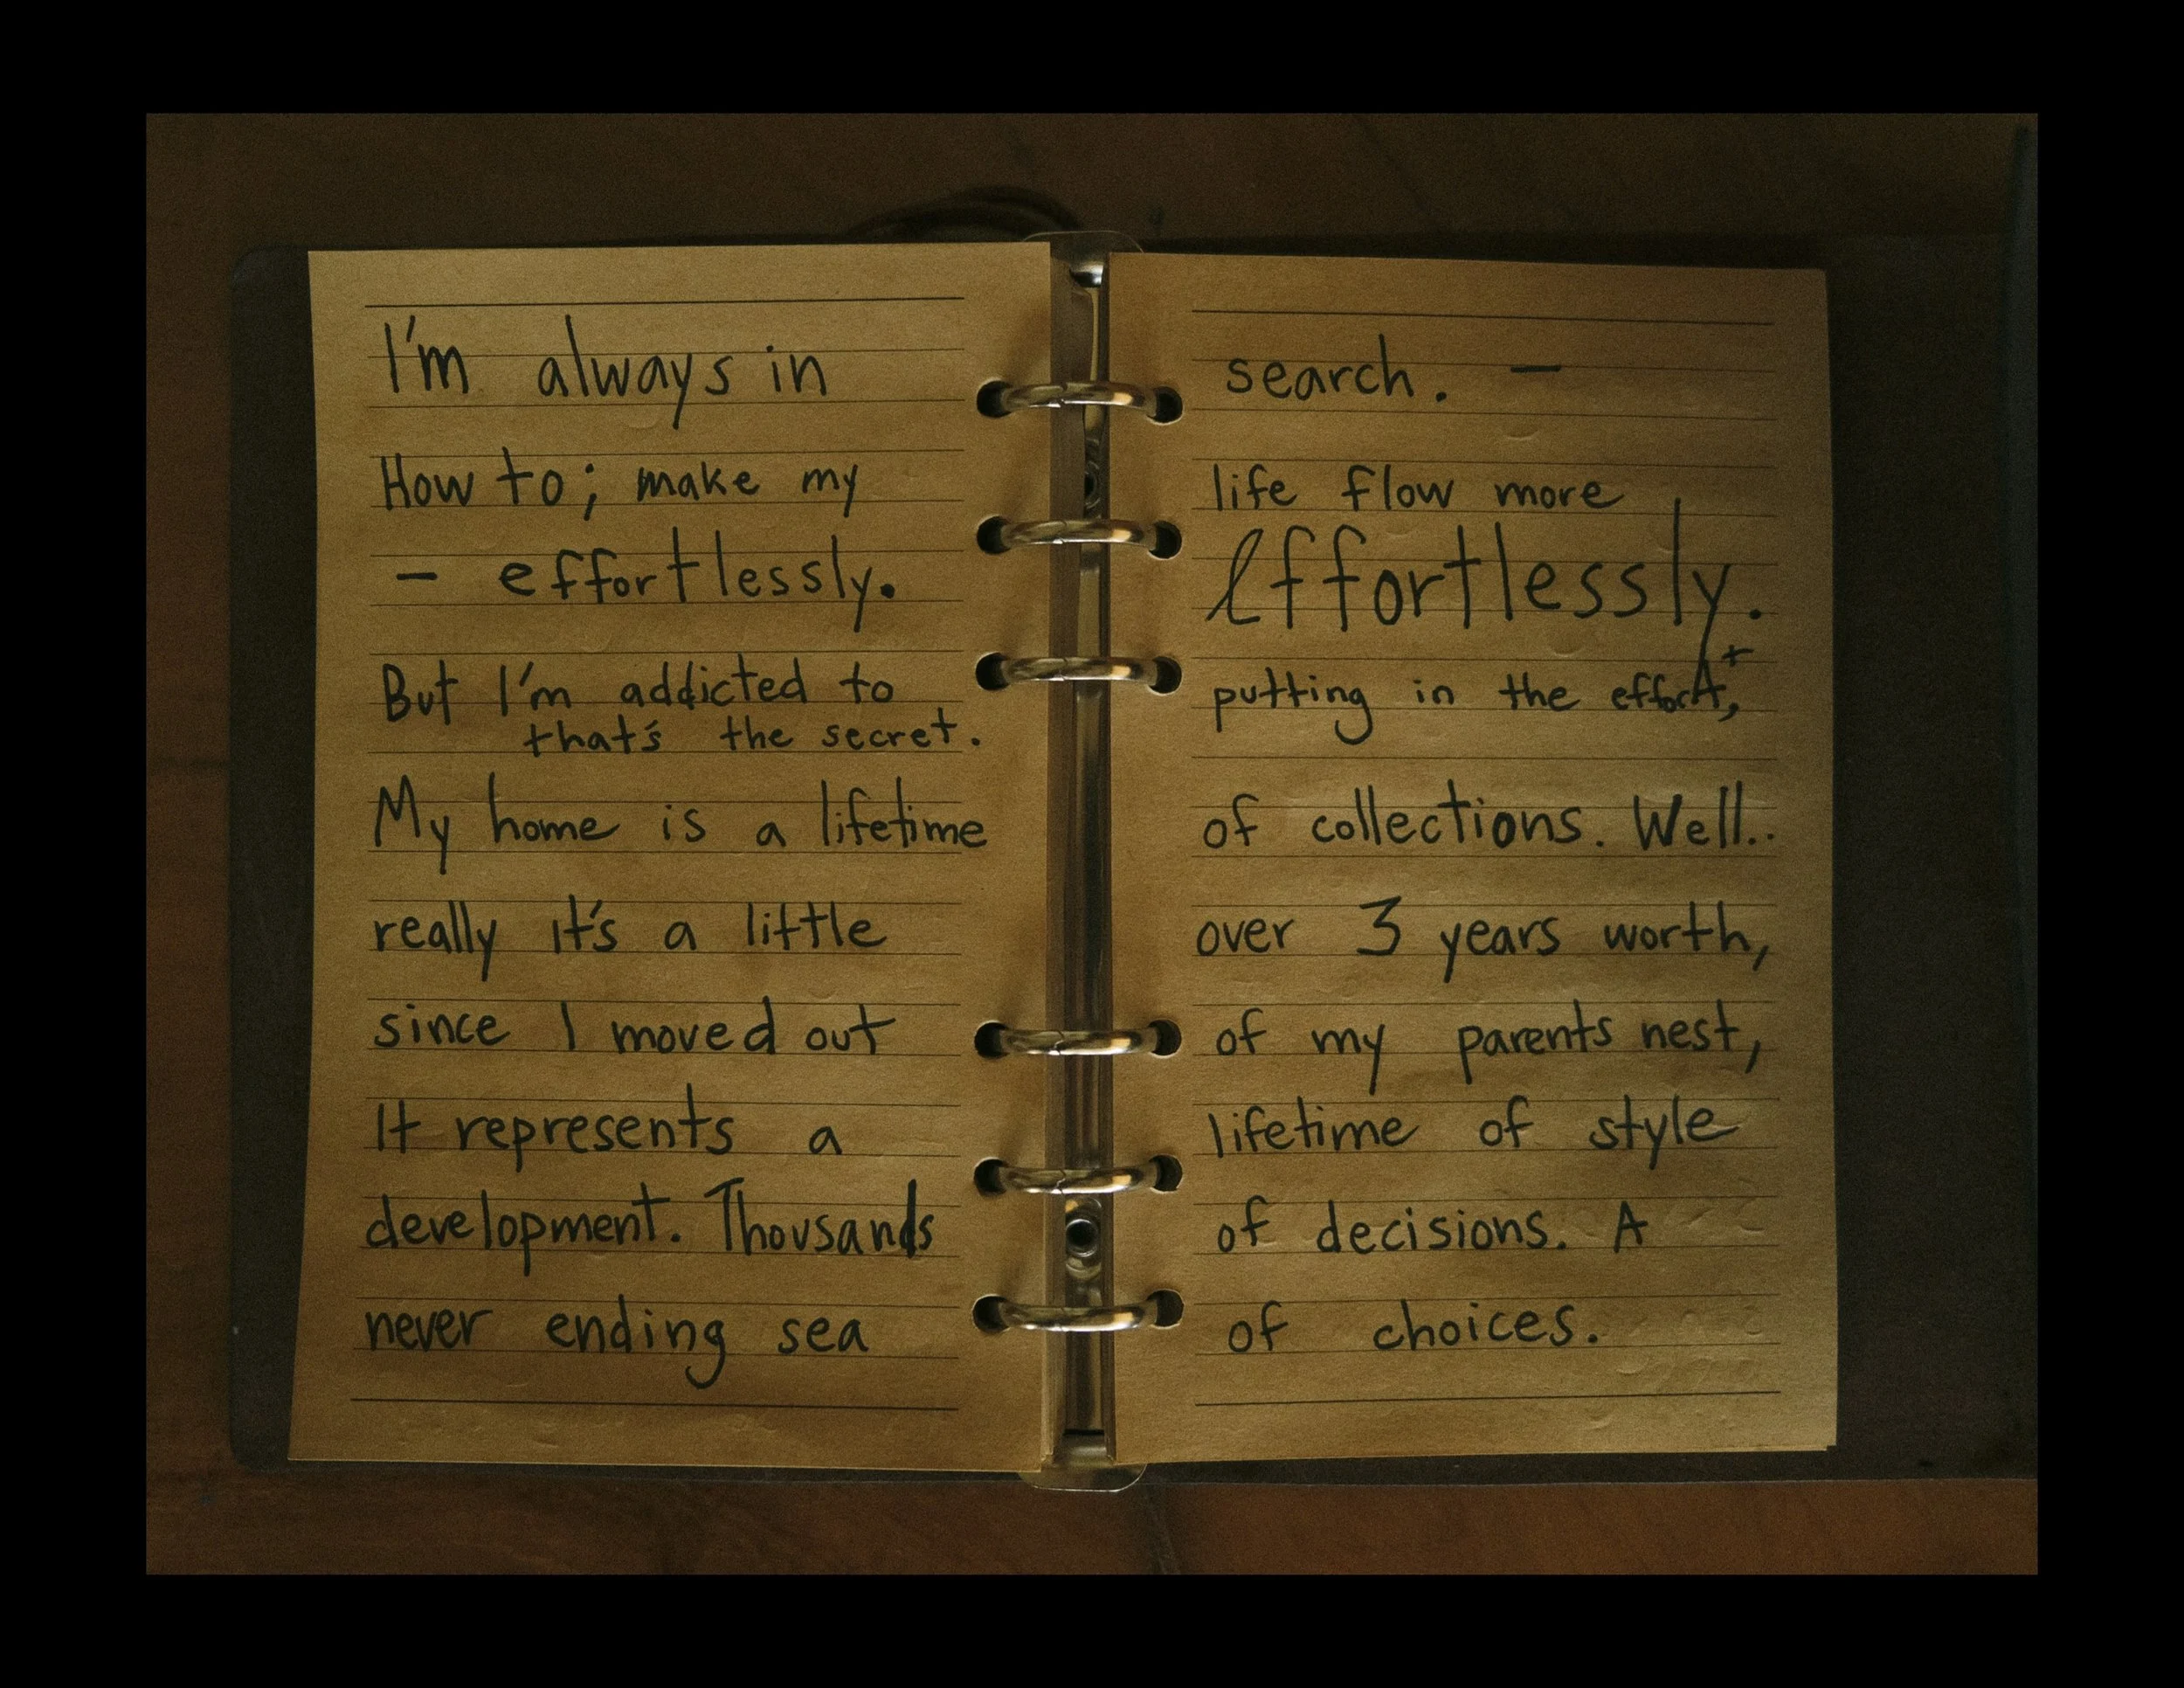 I'm always in search. —
How to; make my life flow more
— effortlessly. Effortlessly.
But I'm addicted to putting in the effort,
that's the secret.
My home is a lifetime of collections. Well..
really it's a little over 3 years worth,
since I moved out of my parents nest,
It represents a lifetime of style
development. Thousands of decisions. A
never ending sea of choices.